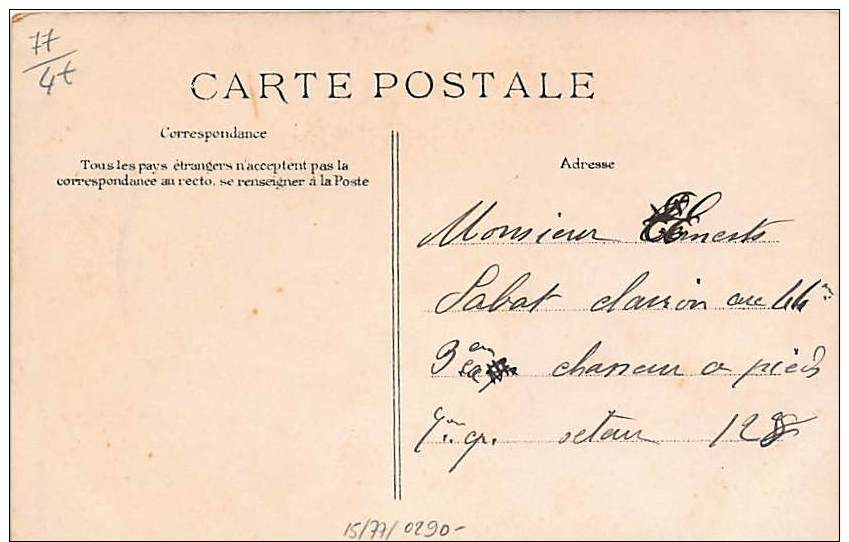 77
4t
CARTE POSTALE
Correspondance
Tous les pays étrangers n'acceptent pas la
correspondance au recto, se renseigner à la Poste
Adresse
Monsieur
Sabat clairon au 44èm
3èm chasseur a pieds
cp. seteur 128
15/77/ 0290-